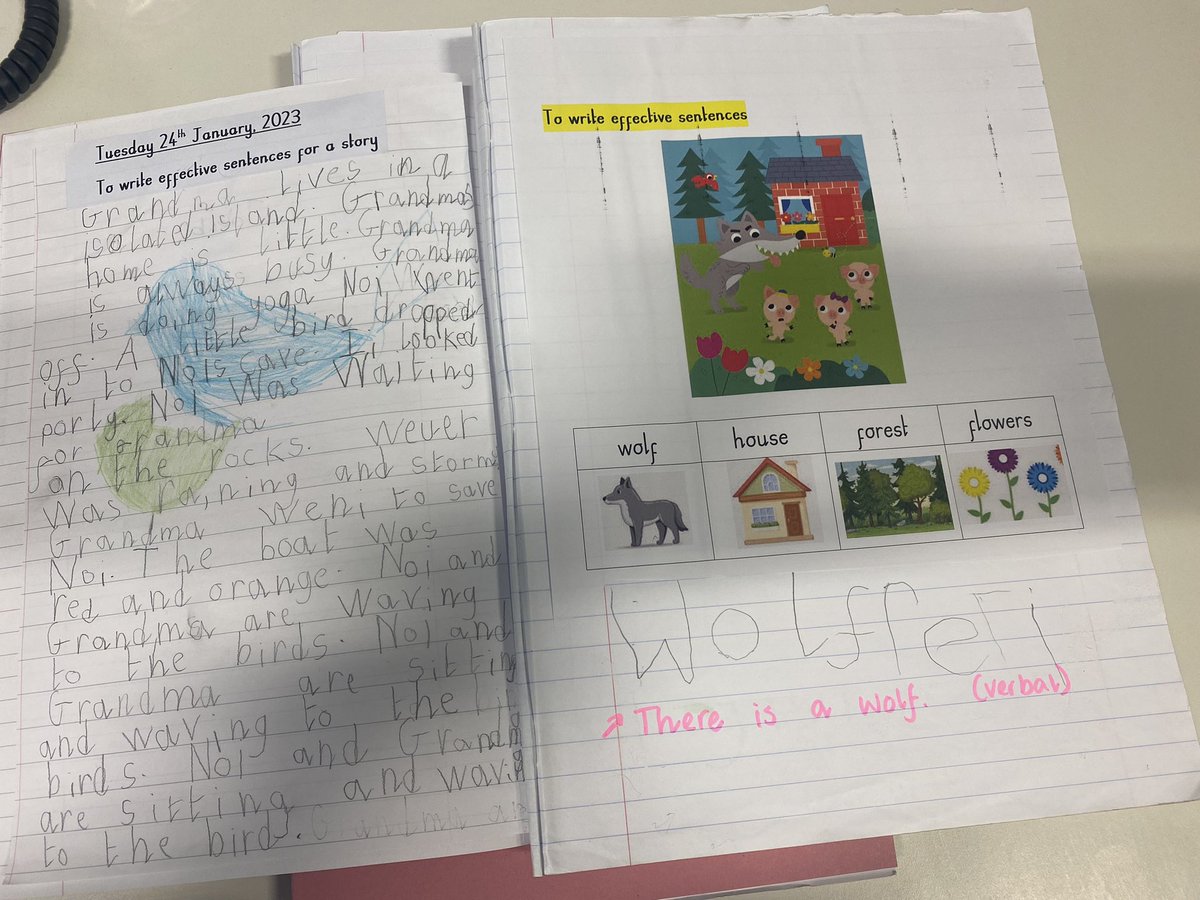 Tuesday 24th January, 2023
To write effective sentences for a story
Grandma Lives in a
isolated island. Grandma's
home is little. Grandma
is always busy. Grandma
is doing yoga Noi went
off. A little bird dropped
in to Nois cave. I, looked
porly. Noi Was Waiting
for grandma
on the rocks. Wever
Was raining and storms
Grandma Went to save
Noi. The boat was
red and orange. Noi and
Grandma are Waving
to the birds. Noi and
Grandma are sitting
and waving to the
birds. Noi and Grandm
are sitting and waving
to the birds. Grandma a
To write effective sentences
wolf
house
forest
flowers
Wolf
There is a wolf. (verbal)